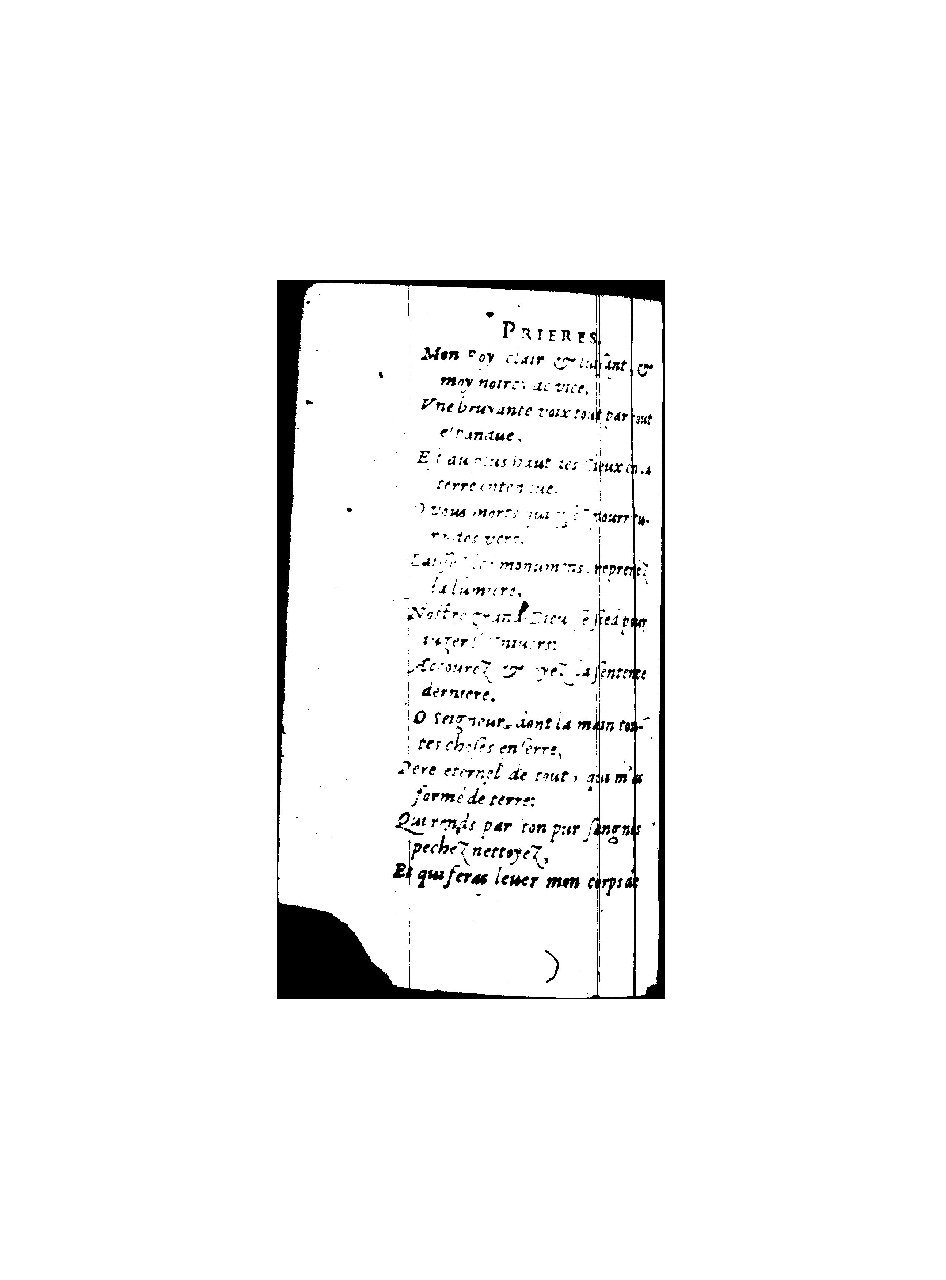 PRIERES.
Mon Roy clair & luisant, &
moy noirci de vice.
Vne bruyante voix tout par tout
espandue,
Et au plus haut des Cieux en la
terre entendue.
O vous morts qui
vers,
Laissez les monumens, reprenez
la lumiere,
Nostre grand Dieu se sied pour
iuger l'vniuers:
Accourez & oyez la sentence
derniere.
O Seigneur, dont la main tou-
tes choses enserre,
Pere eternel de tout, qui m'a
formé de terre:
Qui rends par ton pur sang nos
pechez nettoyez,
Et qui feras leuer mon corps de